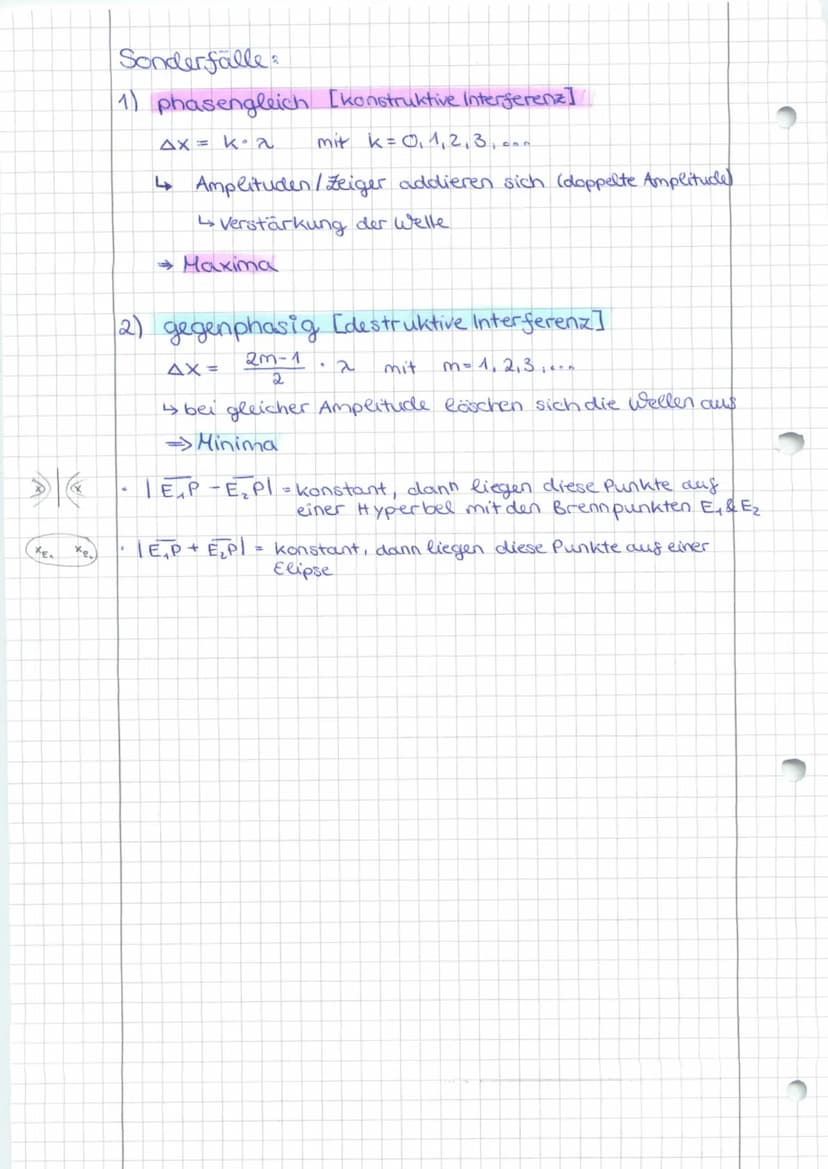 Sonderfälle:
1) phasengleich [konstruktive Interferenz]
Δx = k · λ mit k = 0, 1, 2, 3, ...
↳ Amplituden / Zeiger addieren sich (doppelte Amplitude)
↳ Verstärkung der Welle
⇒ Maxima
2) gegenphasig [destruktive Interferenz]
Δx = \frac{2m-1}{2} · λ mit m = 1, 2, 3, ...
↳ bei gleicher Amplitude löschen sich die Wellen aus
⇒ Minima
x x
· |\overline{E₁P} - \overline{E₂P}| = konstant, dann liegen diese Punkte auf
einer Hyperbel mit den Brennpunkten E₁ & E₂
x E₁ x E₂
· |\overline{E₁P} + \overline{E₂P}| = konstant, dann liegen diese Punkte auf einer
Elipse